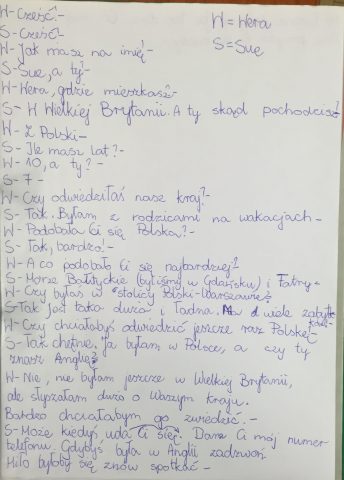 W-Cześć!-
W = Wera
S-Cześć!-
S = Sue
W-Jak masz na imię?-
S-Sue, a ty?-
W-Wera, gdzie mieszkasz?-
S-W Wielkiej Brytanii. A ty skąd pochodzisz?
W-Z Polski-
S-Ile masz lat?-
W-10, a ty?-
S-7-
W-Czy odwiedziłaś nasz kraj?-
S-Tak. Byłam z rodzicami na wakacjach-
W-Podobała Ci się Polska?-
S-Tak, bardzo!-
W-A co podobało Ci się najbardziej?
S-Morze Bałtyckie (byliśmy w Gdańsku) i Tatry-
W-Czy byłaś w stolicy Polski-Warszawie?
S-Tak jest taka duża i ładna. Ma wiele
W-Czy chciałabyś odwiedzić jeszcze raz Polskę?
S-Tak chętnie, ja byłam w Polsce, a czy ty
znasz Anglię?
W-Nie, nie byłam jeszcze w Wielkiej Brytanii,
ale słyszałam dużo o Waszym kraju.
Bardzo chciałabym go zwiedzić.-
S-Może kiedyś uda Ci się. Dam Ci mój numer
telefonu. Gdybyś była w Anglii zadzwoń.
Miło byłoby się znów spotkać-